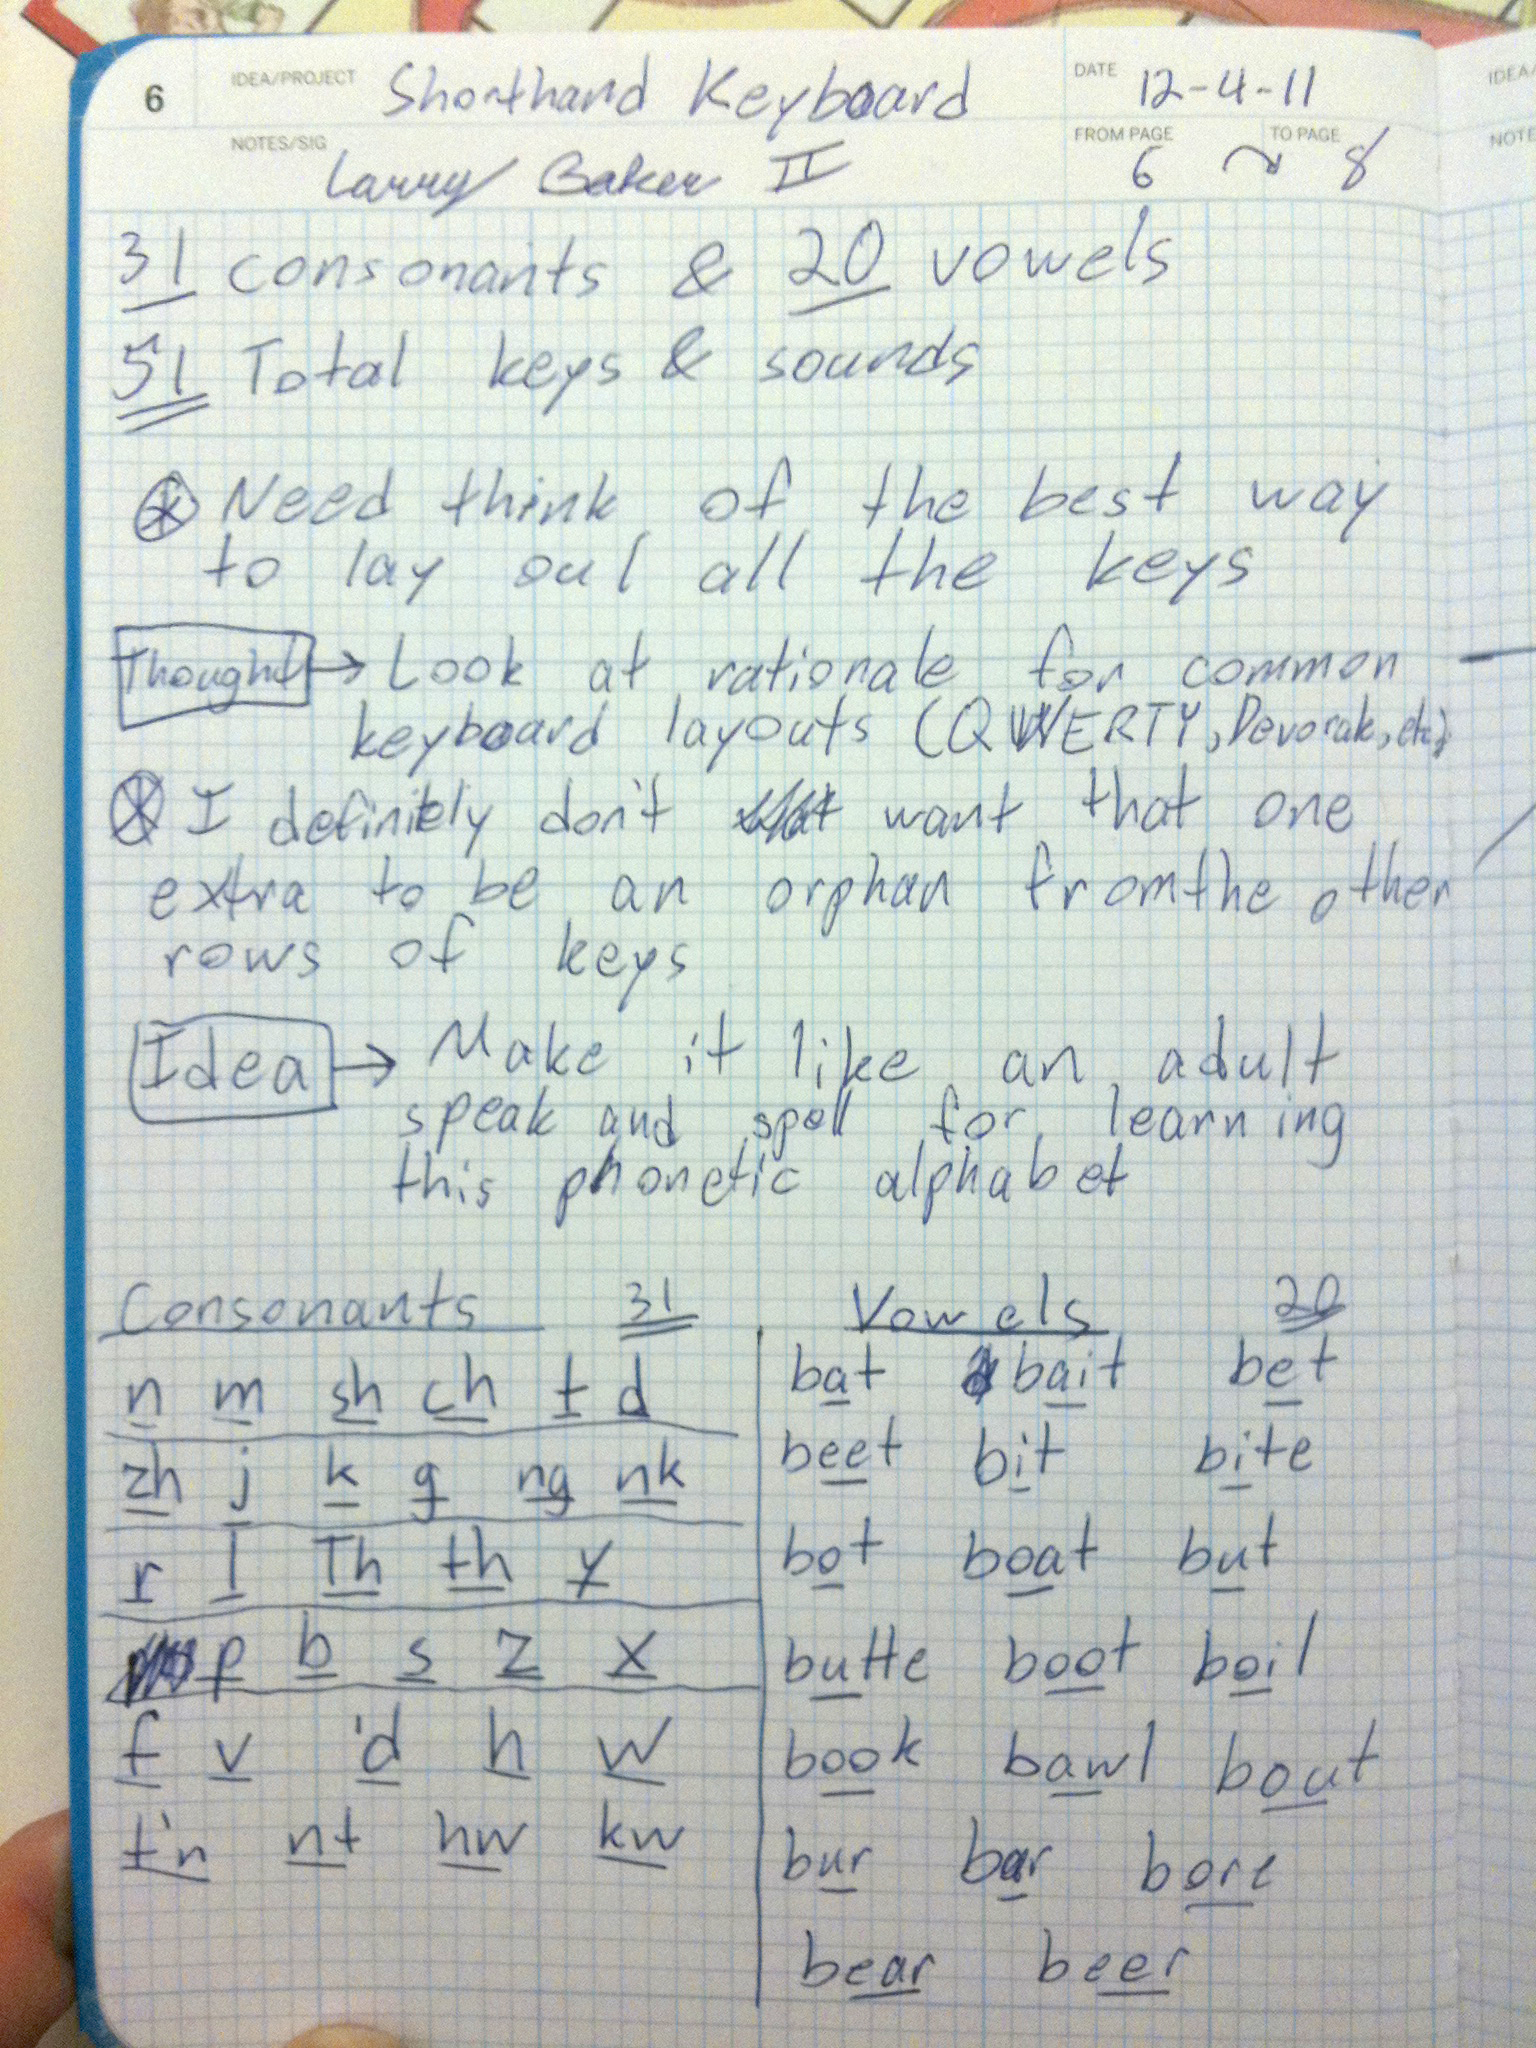 6 IDEA/PROJECT Shorthand Keyboard DATE 12-4-11
NOTES/SIG Larry Baker II FROM PAGE 6 TO PAGE 8
31 consonants & 20 vowels
51 Total keys & sounds
Need think of the best way
to lay out all the keys
Thought → Look at rationale for common
keyboard layouts (QWERTY, Devorak, etc.)
I definitely don't want that one
extra to be an orphan from the other
rows of keys
Idea → Make it like an adult
speak and spell for learning
this phonetic alphabet
Consonants 31
n m sh ch t d
zh j k g ng nk
r l Th th y
p b s z x
f v 'd h w
t'n nt hw kw
Vowels 20
bat bait bet
beet bit bite
bot boat but
butte boot boil
book bawl bout
bur bar bore
bear beer
IDEA/
NOTE